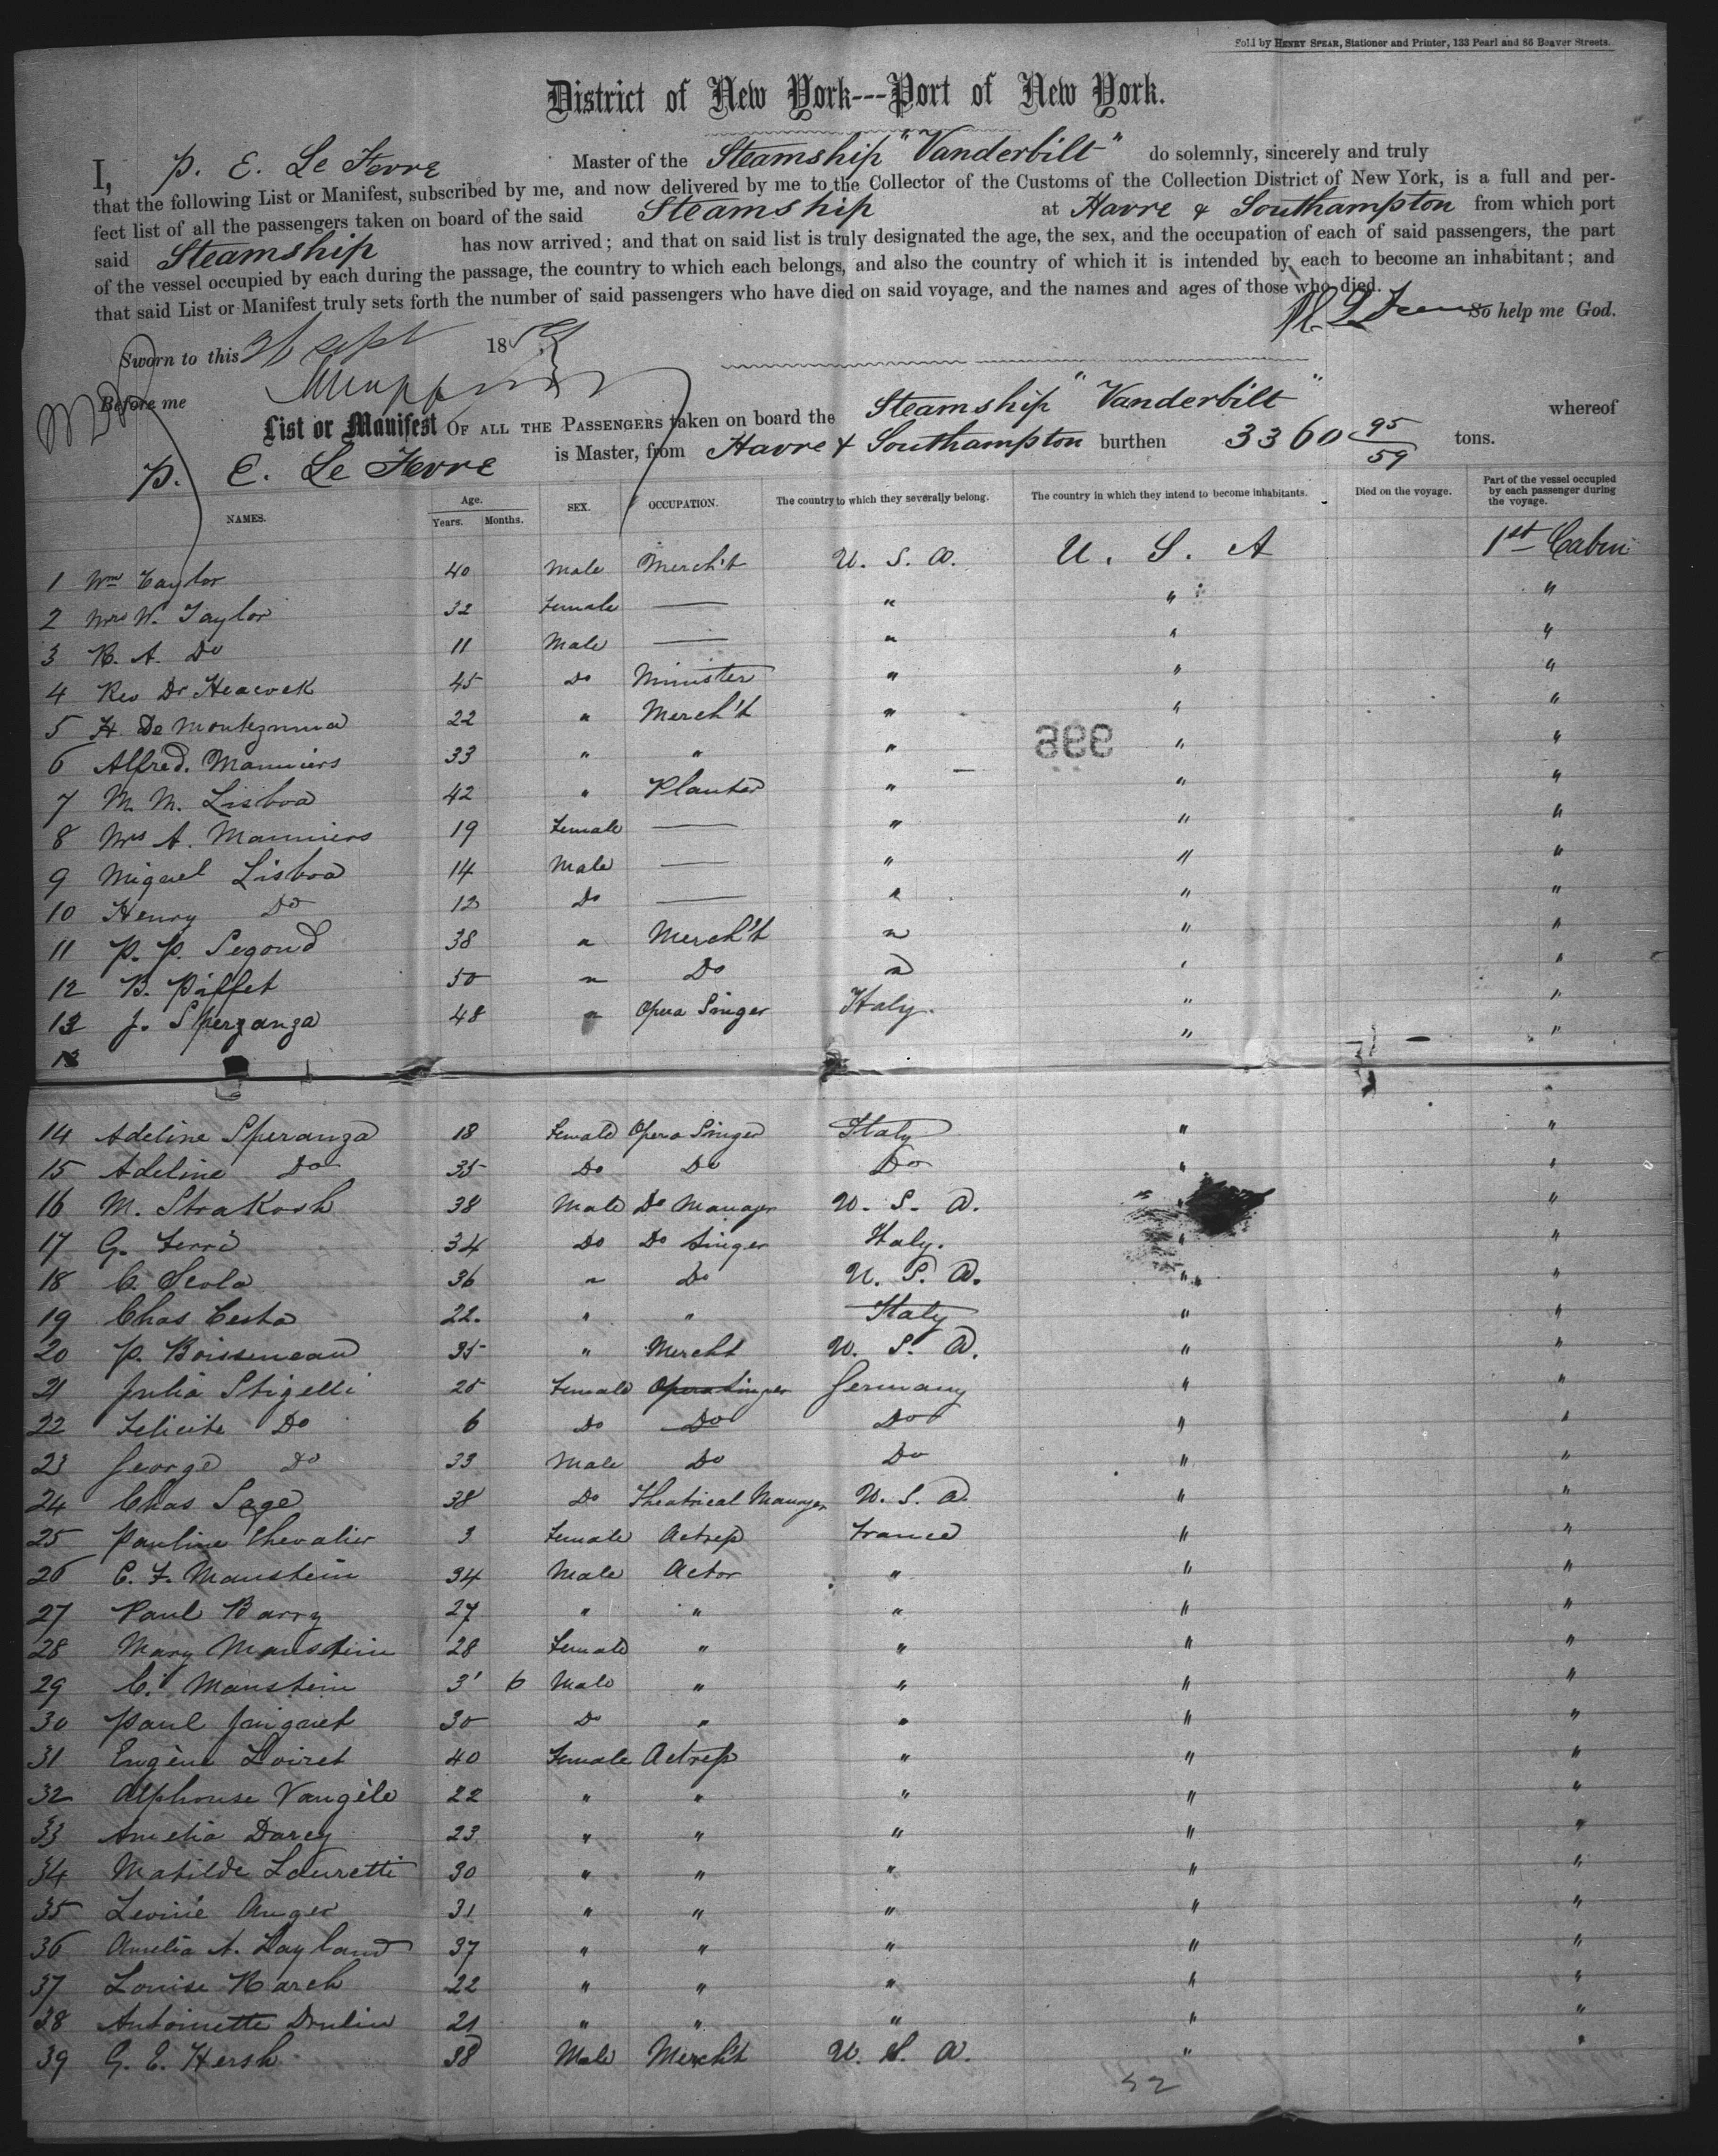 Sold by HENRY SPEAR, Stationer and Printer, 133 Pearl and 86 Beaver Streets.
District of New York---Port of New York.
I, P. E. Le Fevre Master of the Steamship "Vanderbilt" do solemnly, sincerely and truly
that the following List or Manifest, subscribed by me, and now delivered by me to the Collector of the Customs of the Collection District of New York, is a full and per-
fect list of all the passengers taken on board of the said Steamship at Havre & Southampton from which port
said Steamship has now arrived; and that on said list is truly designated the age, the sex, and the occupation of each of said passengers, the part
of the vessel occupied by each during the passage, the country to which each belongs, and also the country of which it is intended by each to become an inhabitant; and
that said List or Manifest truly sets forth the number of said passengers who have died on said voyage, and the names and ages of those who died.
So help me God.
Sworn to this 26 Sept 1859
Before me
List or Manifest OF ALL THE PASSENGERS taken on board the Steamship "Vanderbilt" whereof
P. E. Le Fevre is Master, from Havre & Southampton burthen 3360 95/59 tons.
NAMES. Age. Years. Months. SEX. OCCUPATION. The country to which they severally belong. The country in which they intend to become inhabitants. Died on the voyage. Part of the vessel occupied by each passenger during the voyage.
1 Wm Taylor 40 Male Merch't U. S. A. U. S. A 1st Cabin
2 Mrs W. Taylor 32 Female — " " "
3 R. A. Do 11 Male — " " "
4 Rev Dr Heacock 45 Do Minister " " "
5 H. De Montezuma 22 " Merch't " " "
6 Alfred. Manniers 33 " " " " "
7 M. M. Lisboa 42 " Planter " " "
8 Mrs A. Manniers 19 Female — " " "
9 Miguel Lisboa 14 Male — " " "
10 Henry Do 12 Do — " " "
11 P. P. Segond 38 " Merch't " " "
12 B. Piffet 50 " Do " " "
13 J. Speranza 48 " Opera Singer Italy. " "
13 " "
14 Adeline Speranza 18 Female Opera Singer Italy " "
15 Adeline Do 35 Do Do Do " "
16 M. Strakosh 38 Male Do Manager U. S. A. " "
17 G. Ferri 34 Do Do Singer Italy. " "
18 C. Scola 36 " Do U. S. A. " "
19 Chas Testa 22. " " Italy " "
20 P. Boisseneau 35 " Mercht U. S. A. " "
21 Julia Stigelli 25 Female Opera Singer Germany " "
22 Felicite Do 6 Do Do Do " "
23 George Do 33 Male Do Do " "
24 Chas Sage 38 Do Theatrical Manager U. S. A. " "
25 Pauline Chevalier 3 Female Actress France " "
26 C. F. Manstein 34 Male Actor " " "
27 Paul Barry 27 " " " " "
28 Mary Manstein 28 Female " " " "
29 C. Manstein 3 6 Male " " " "
30 Paul Juignet 30 Do " " " "
31 Eugène Loiret 40 Female Actress " " "
32 Alphonse Vangèle 22 " " " " "
33 Amelia Darcy 23 " " " " "
34 Matilde Lauretti 30 " " " " "
35 Leonie Auger 31 " " " " "
36 Amelia A. Layland 37 " " " " "
37 Louise Karch 22 " " " " "
38 Antoinette Drulin 21 " " " " "
39 G. E. Hersh 38 Male Merch't U. S. A. " "